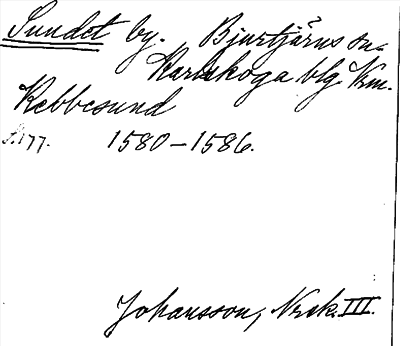 Sundet by. Bjurtjärns sn.
Karlskoga blg Vrm.
Kebbesund
s. 177. 1580–1586.
Johansson, Nrk. III.